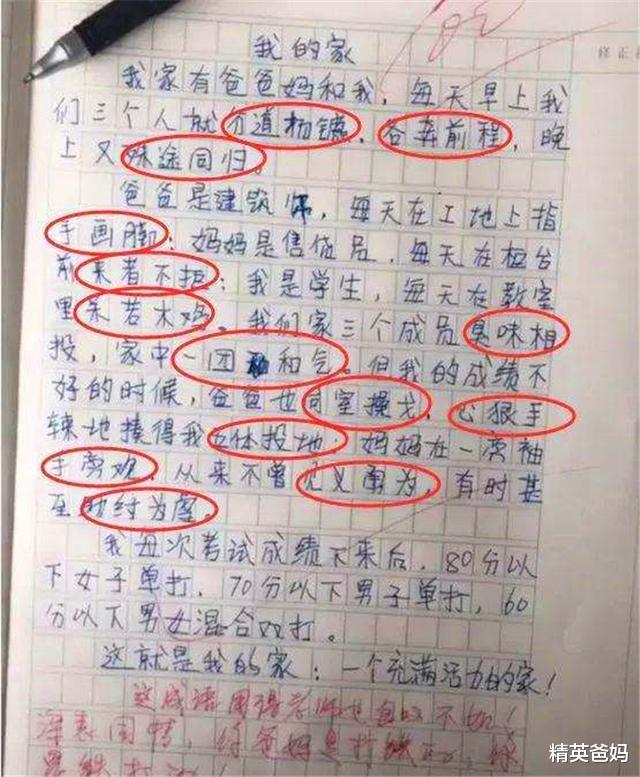 修正
我的家
我家有爸爸妈和我，每天早上我
们三个人就分道扬镳、各奔前程，晚
上又殊途同归。
爸爸是建筑师，每天在工地上指
手画脚；妈妈是售货员，每天在柜台
前来者不拒；我是学生，每天在教室
里呆若木鸡。我们家三个成员臭味相
投，家中一团和气。但我的成绩不
好的时候，爸爸也同室操戈，心狠手
辣地揍得我五体投地；妈妈在一旁袖
手旁观，从来不曾见义勇为，有时甚
至助纣为虐。
我每次考试成绩下来后，80分以
下女子单打，70分以下男子单打，60
分以下男女混合双打。
这就是我的家：一个充满活力的家！
这成语用得老师也自叹不如！
深表同情，
精英爸妈